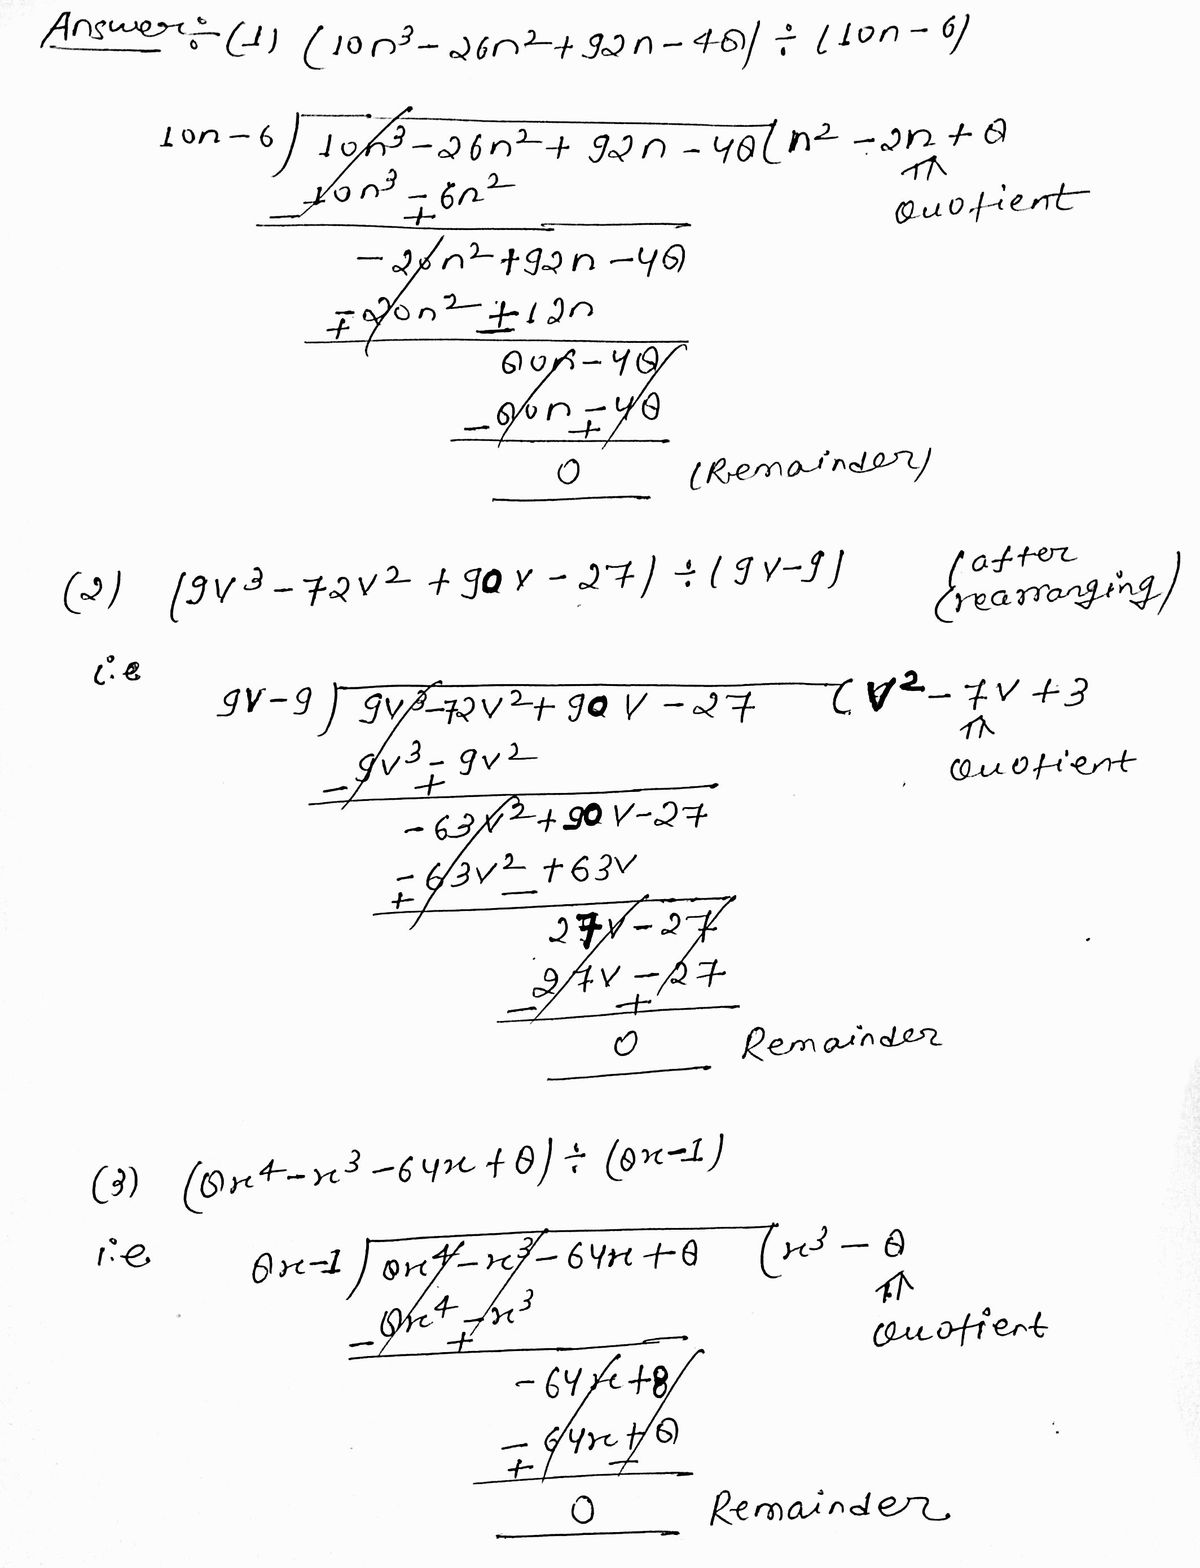 Answer:- (1) (10n³ - 26n² + 92n - 48) ÷ (10n - 6)
10n - 6 ) 10n³ - 26n² + 92n - 48 ( n² - 2n + 8
10n³ - 6n²
- +
Quotient
- 20n² + 92n - 48
- 20n² + 12n
+ -
80n - 48
80n - 48
- +
0 (Remainder)
(2) (9v³ - 72v² + 90v - 27) ÷ (9v - 9) (after rearranging)
i.e
9v - 9 ) 9v³ - 72v² + 90v - 27 ( v² - 7v + 3
9v³ - 9v²
- +
Quotient
- 63v² + 90v - 27
- 63v² + 63v
+ -
27v - 27
27v - 27
- +
0 Remainder
(3) (8x⁴ - x³ - 64x + 8) ÷ (8x - 1)
i.e
8x - 1 ) 8x⁴ - x³ - 64x + 8 ( x³ - 8
8x⁴ - x³
- +
Quotient
- 64x + 8
- 64x + 8
+ -
0 Remainder